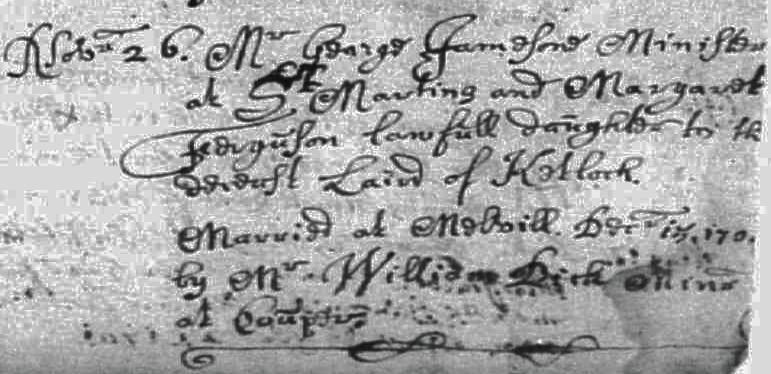 Novr 26. Mr George Jamesone Minister
at St. Martins and Margaret
Ferguson lawfull daughter to th
deceast Laird of Ketlock.
Married at Melvill. Decr 15. 170.
by Mr. William Dick Minr
at Couper